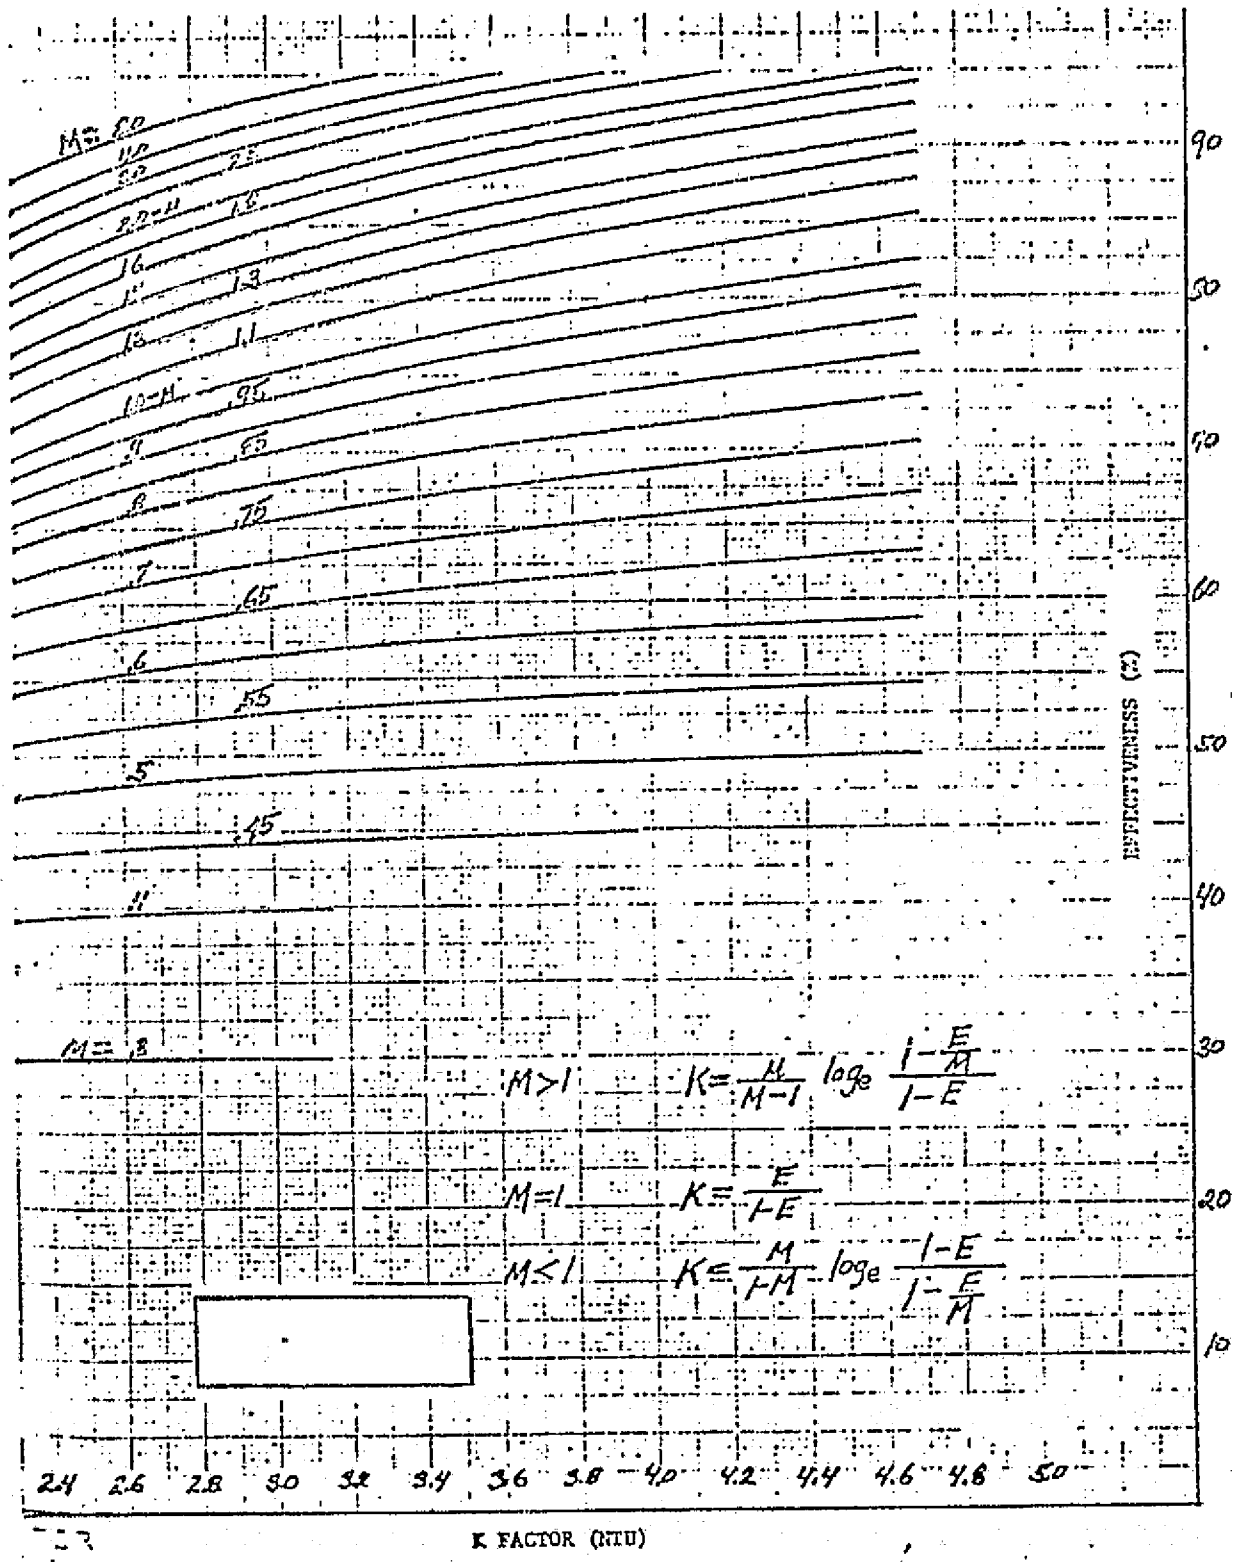 M= 80
40
30
25
20-M
1.6
16
15
1.3
13
1.1
10-M
.95
.9
.85
.8
.75
.7
.65
.6
.55
.5
.45
.4
M= .3
90
80
70
60
50
40
30
20
10
EFFECTIVENESS (%)
M>1 K= M/M-1 loge 1-E/M / 1-E
M=1 K= E/1-E
M<1 K= M/1-M loge 1-E / 1-E/M
2.4 2.6 2.8 3.0 3.2 3.4 3.6 3.8 4.0 4.2 4.4 4.6 4.8 5.0
K FACTOR (NTU)